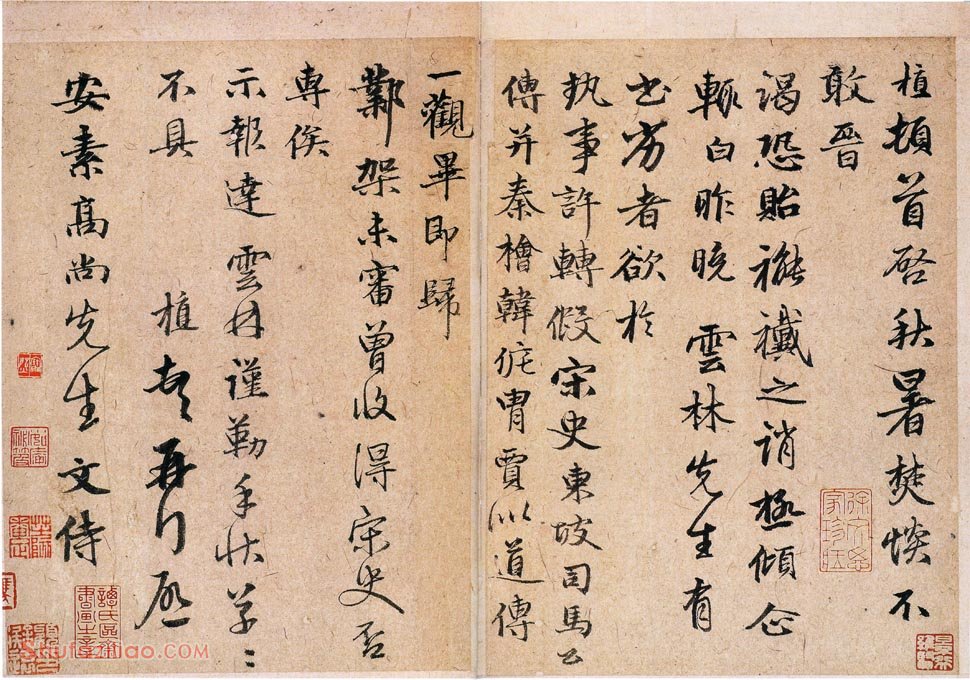 植頓首啓秋暑焚惔不
敢晉
謁恐貽褦襶之誚極傾企
輒白昨晚 雲林先生有
者欲於
執事許轉假宋史東坡司馬公
傳并秦檜韓侂胄賈似道傳
一觀畢即歸
鄴架未審曾收得宋史否
專俟
示報達 雲林謹勒手狀草〻
不具 植頓首再拜啓
安素高尚先生 文侍
譚氏區齋書畫之章